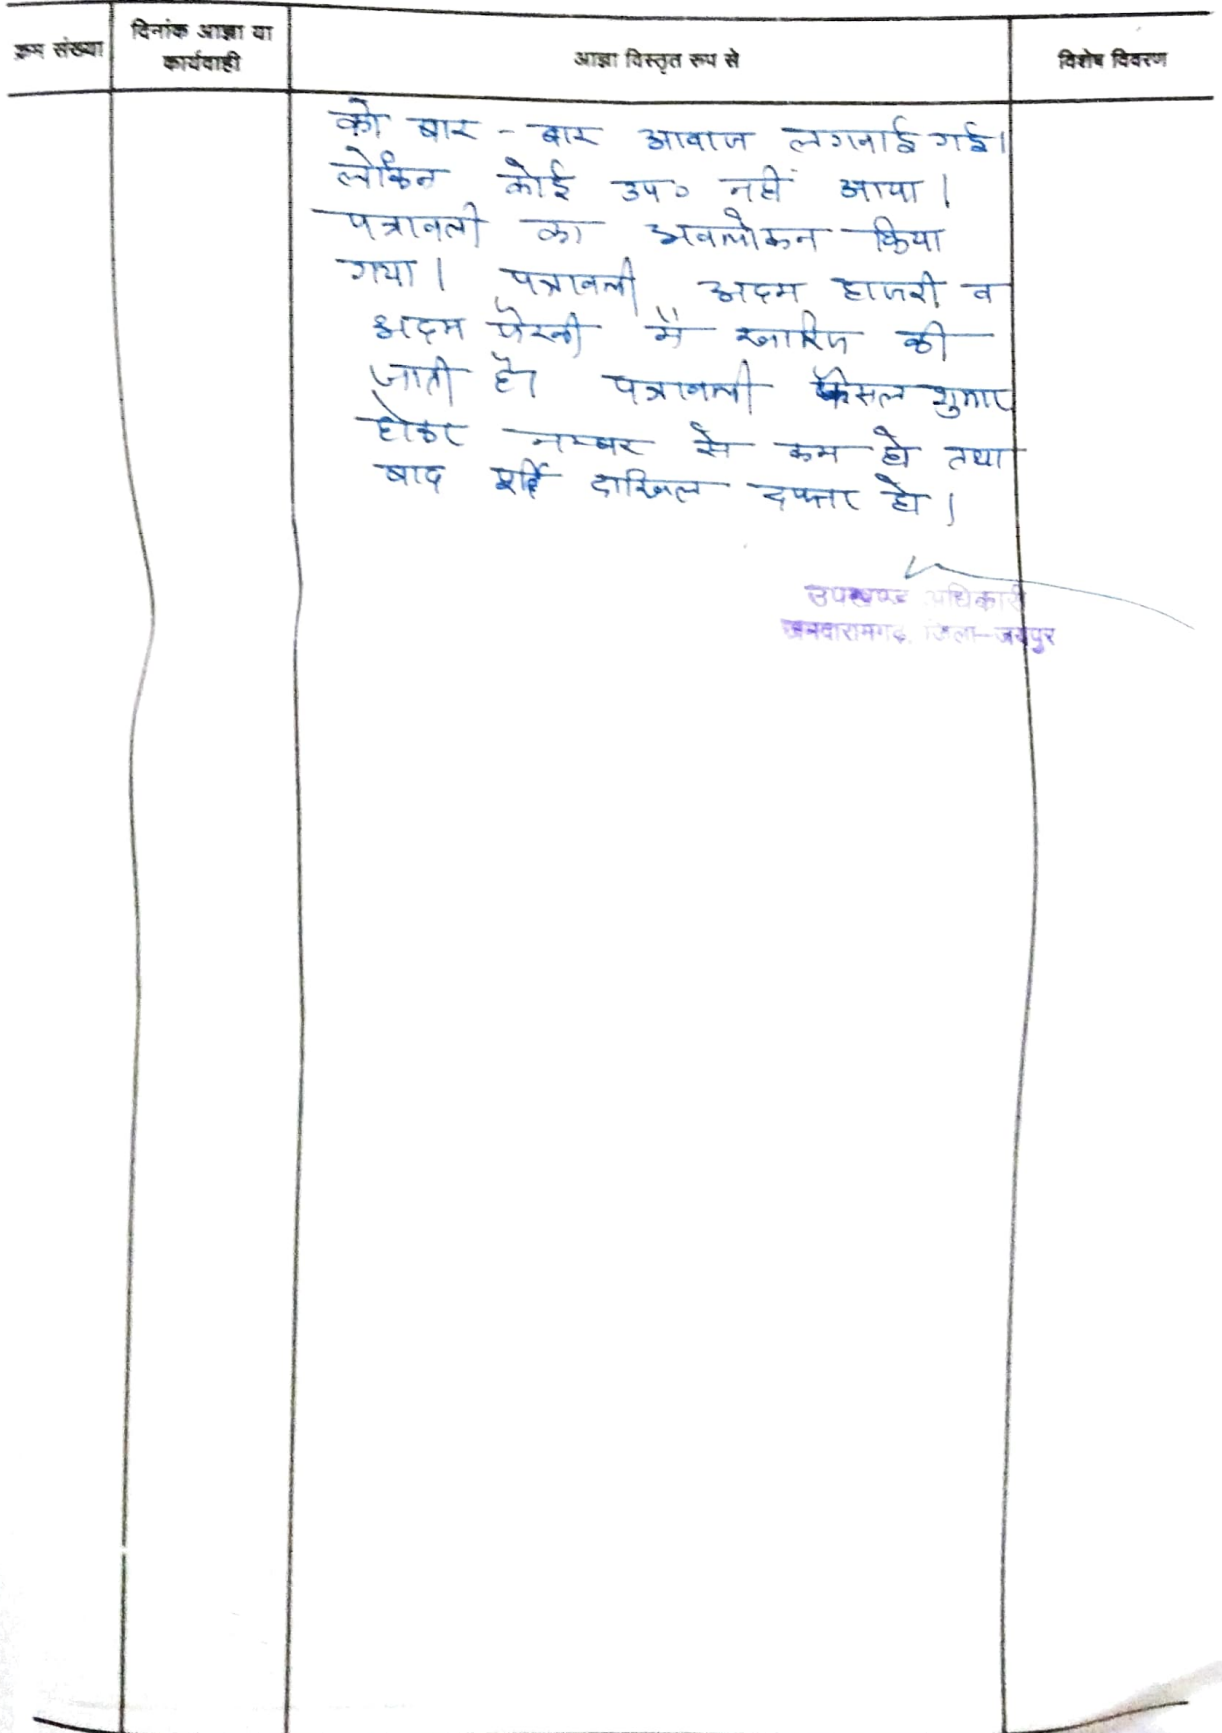 क्रम संख्या
दिनांक आज्ञा या
कार्यवाही
आज्ञा विस्तृत रूप से
विशेष विवरण
को बार - बार आवाज लगवाई गई।
लेकिन कोई उप० नहीं आया।
पत्रावली का अवलोकन किया
गया। पत्रावली अदम हाजरी व
अदम पैरवी में खारिज की
जाती है। पत्रावली फैसल शुमार
होकर नम्बर से कम हो तथा
बाद दाखिल दफ्तर हो।
उपखण्ड अधिकारी
जमवारामगढ, जिला-जयपुर